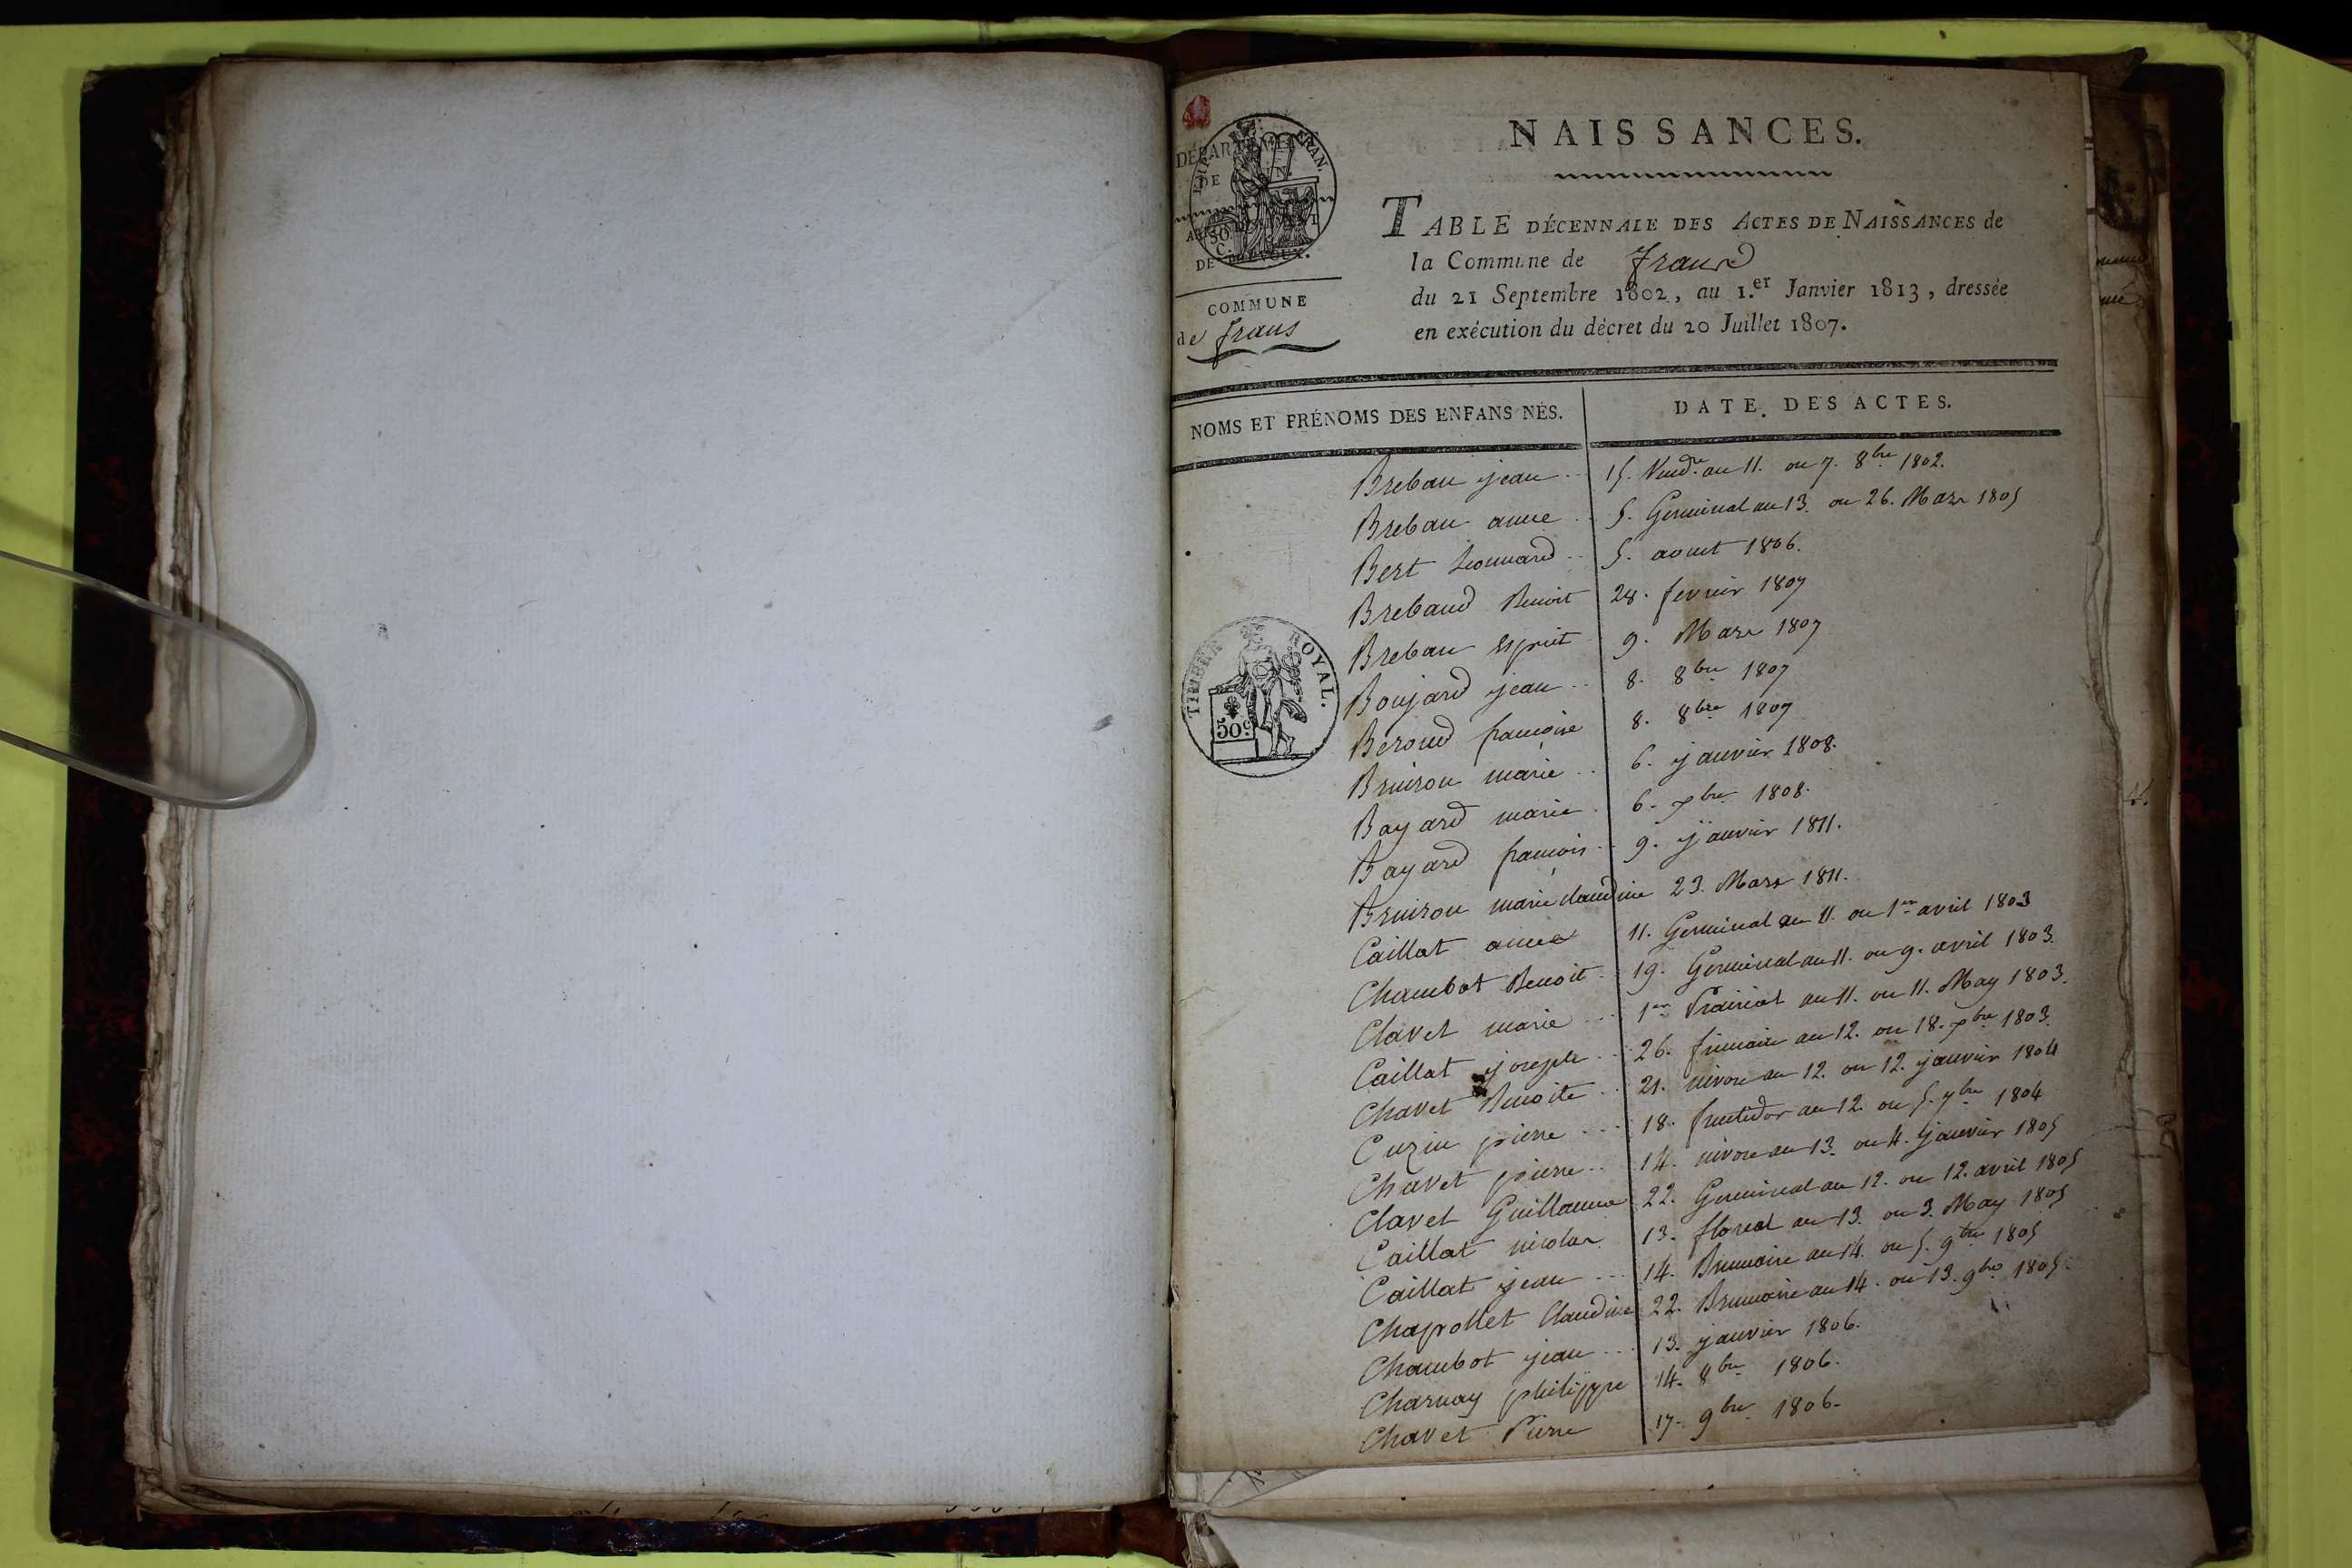 NAISSANCES.
TABLE DÉCENNALE DES ACTES DE NAISSANCES de
la Commune de frans
du 21 Septembre 1802, au 1.er Janvier 1813, dressée
en exécution du décret du 20 Juillet 1807.
DÉPARTEMENT
DE L'AIN.
ARRONDISSEMENT
DE TRÉVOUX.
COMMUNE
de frans
NOMS ET PRÉNOMS DES ENFANS NÉS. DATE DES ACTES.
Breban jean .. 15. Vendre. an 11. ou 7. 8bre 1802.
Breban anne .. 5. Germinal an 13. ou 26. Mars 1805
Bert Leonnard .. 5. aoust 1806.
Breband Benoit 28. fevrier 1807
Breban Esprit 9. Mars 1807
Boujard jean .. 8. 8bre 1807
TIMBRE ROYAL.
50c.
Beroud francoise 8. 8bre 1807
Bruiron marie .. 6. janvier 1808.
Bayard marie . 6. xbre 1808.
Bayard francois .. 9. janvier 1811.
Bruiron marie claudine 23. Mars 1811.
Caillat anne 11. Germinal an 11. ou 1er avril 1803
Chambot Benoit . 19. Germinal an 11. ou 9. avril 1803.
Clavet marie ... 1er Prairial an 11. ou 11. May 1803.
Caillat joseph .. 26. frimaire an 12. ou 18. xbre 1803.
Chavet Benoite .. 21. nivose an 12. ou 12. janvier 1804
Cuzin pierre ... 18. fructidor an 12. ou 5. 7bre 1804
Chavet pierre .. 14. nivose an 13. ou 4. janvier 1805
Clavet Guillaume 22. Germinal an 12. ou 12. avril 1805
Caillat nicolas 13. floreal an 13. ou 3. May 1805
Caillat jean ... 14. Brumaire an 14. ou 5. 9bre 1805
Chapollet Claudine 22. Brumaire an 14. ou 13. 9bre 1805.
Chambot jean ... 13. janvier 1806.
Charnay philippe 14. 8bre 1806.
Chavet Pierre 17. 9bre 1806.